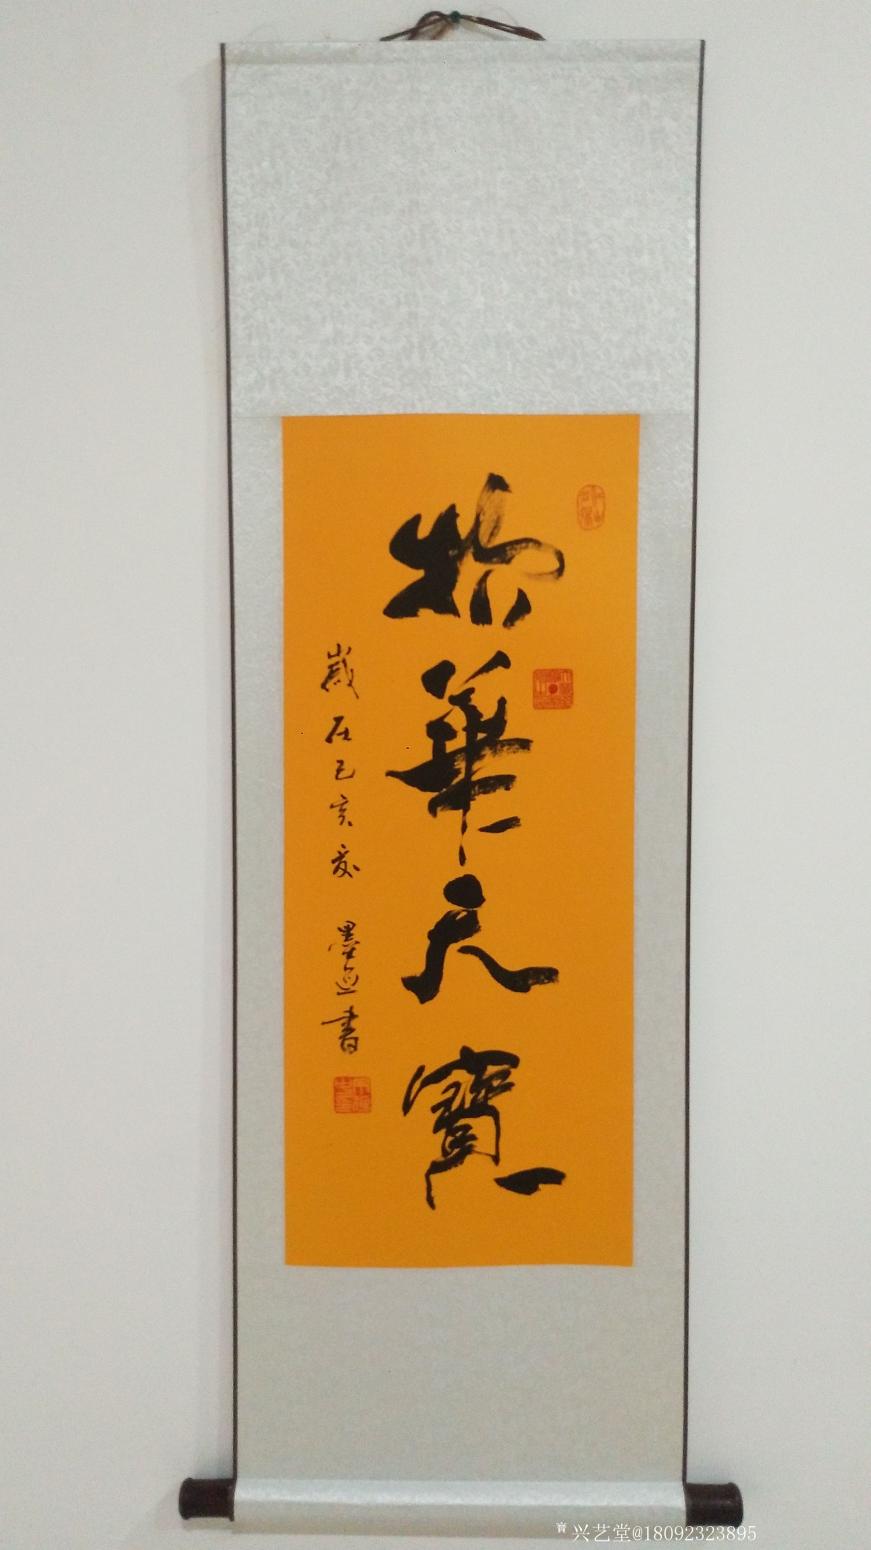 物華天寶
歲在己亥夏 墨逸書
兴艺堂@18092323895